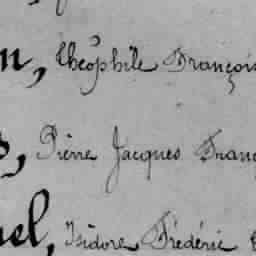 n, Théophile François
s, Pierre Jacques Franç
uel, Isidore Frédéric